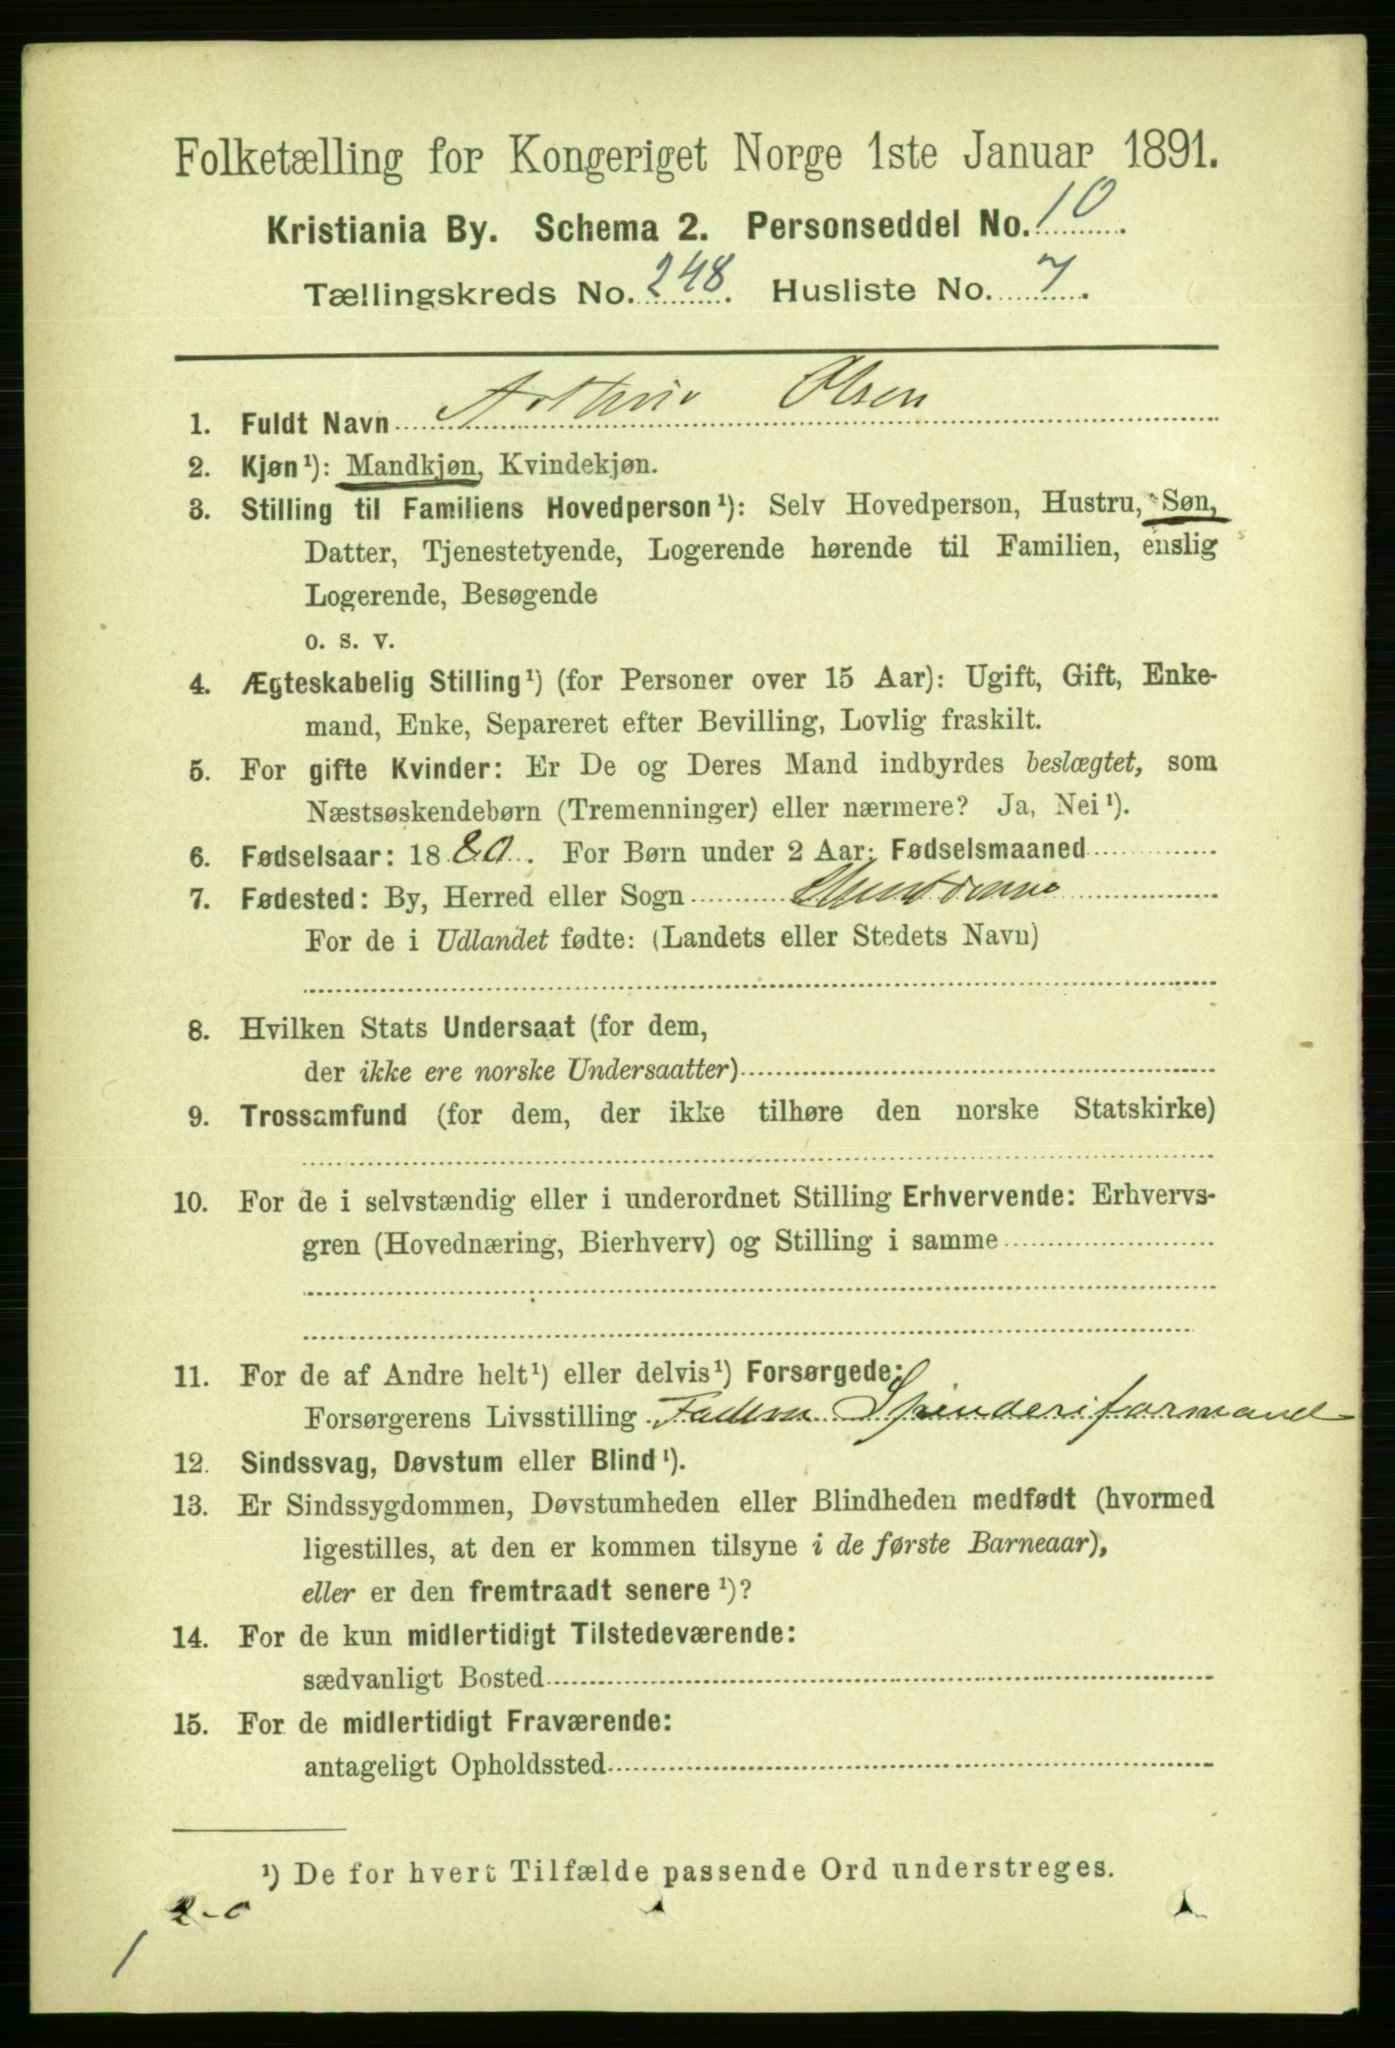 Folketælling for Kongeriget Norge 1ste Januar 1891.
Kristiania By. Schema 2. Personseddel No. 10
Tællingskreds No. 248. Husliste No. 7.
1. Fuldt Navn Olsen
2. Kjøn¹): Mandkjøn, Kvindekjøn.
3. Stilling til Familiens Hovedperson¹): Selv Hovedperson, Hustru, Søn,
Datter, Tjenestetyende, Logerende hørende til Familien, enslig
Logerende, Besøgende
o. s. v.
4. Ægteskabelig Stilling¹) (for Personer over 15 Aar): Ugift, Gift, Enke-
mand, Enke, Separeret efter Bevilling, Lovlig fraskilt.
5. For gifte Kvinder: Er De og Deres Mand indbyrdes beslægtet, som
Næstsøskendebørn (Tremenninger) eller nærmere? Ja, Nei¹).
6. Fødselsaar: 1880. For Børn under 2 Aar: Fødselsmaaned
7. Fødested: By, Herred eller Sogn
For de i Udlandet fødte: (Landets eller Stedets Navn)
8. Hvilken Stats Undersaat (for dem,
der ikke ere norske Undersaatter)
9. Trossamfund (for dem, der ikke tilhøre den norske Statskirke)
10. For de i selvstændig eller i underordnet Stilling Erhvervende: Erhvervs-
gren (Hovednæring, Bierhverv) og Stilling i samme
11. For de af Andre helt¹) eller delvis¹) Forsørgede:
Forsørgerens Livsstilling Faderen Spinderiformand
12. Sindssvag, Døvstum eller Blind¹).
13. Er Sindssygdommen, Døvstumheden eller Blindheden medfødt (hvormed
ligestilles, at den er kommen tilsyne i de første Barneaar),
eller er den fremtraadt senere¹)?
14. For de kun midlertidigt Tilstedeværende:
sædvanligt Bosted
15. For de midlertidigt Fraværende:
antageligt Opholdssted
¹) De for hvert Tilfælde passende Ord understreges.
2-0
1